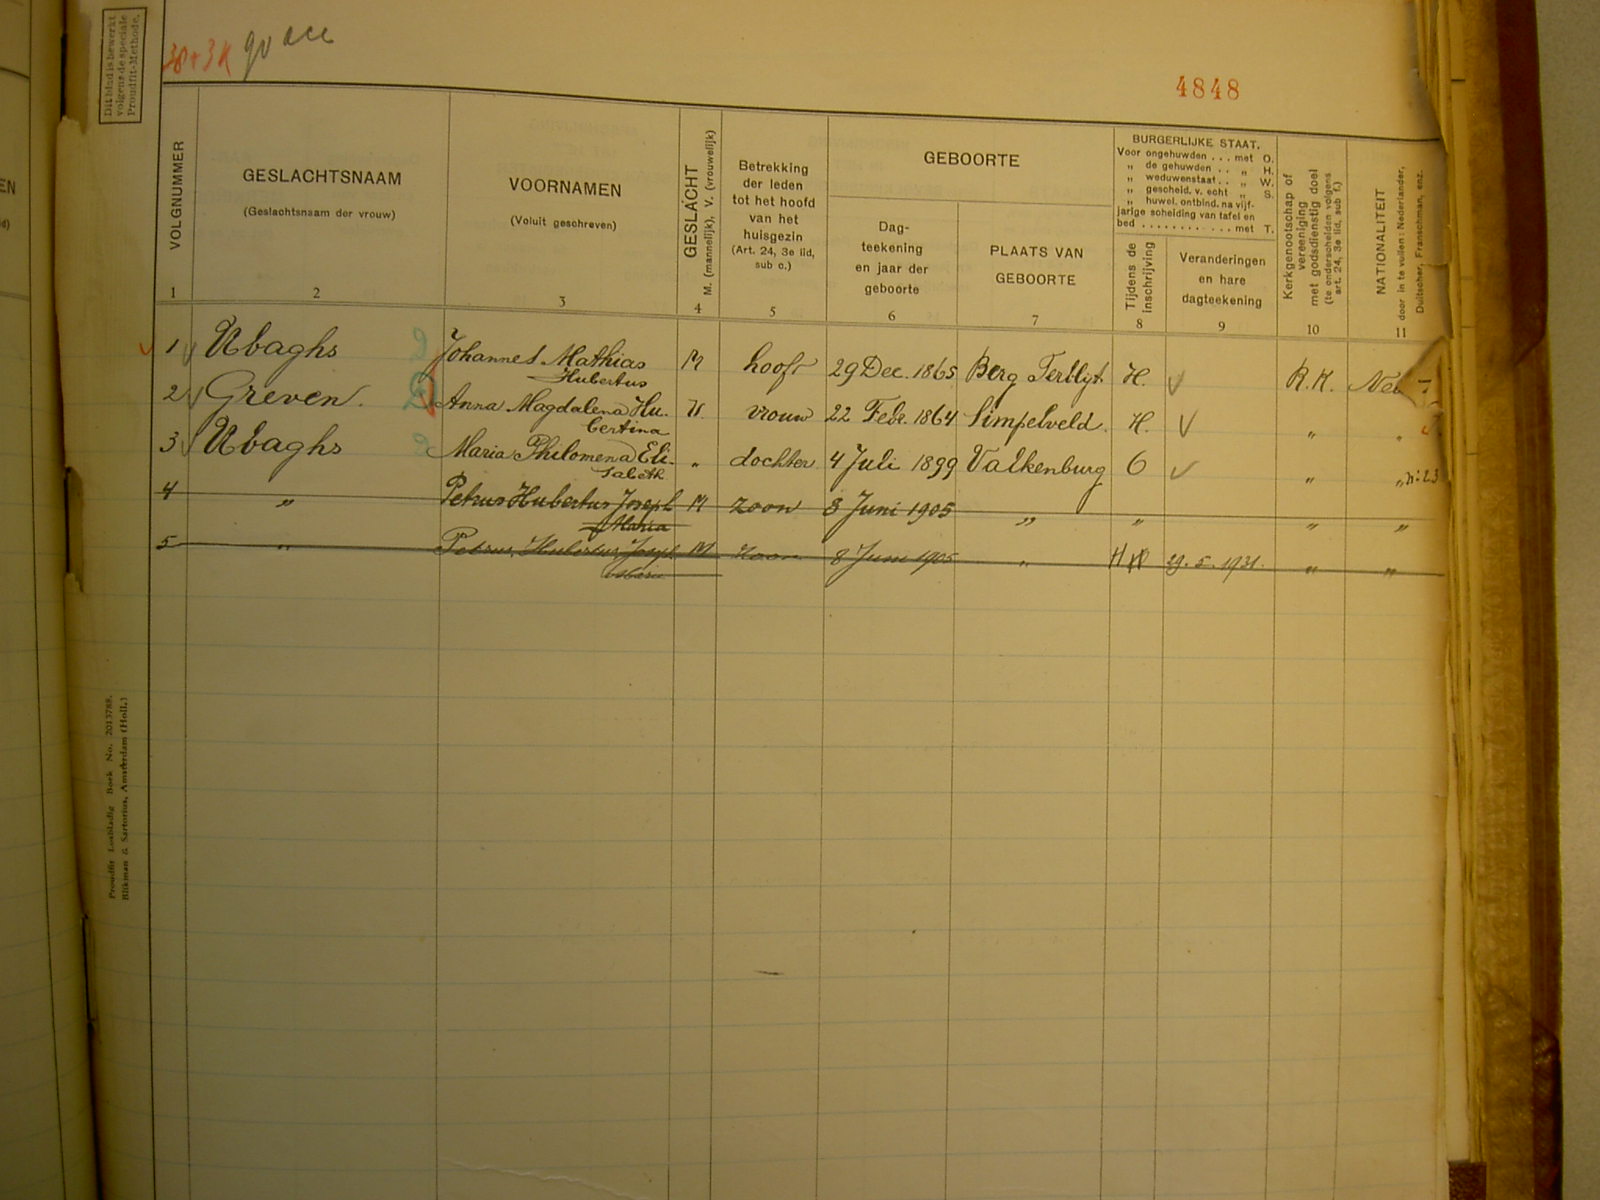 Dit blad is bewerkt
volgens de speciale
Proudfit-Methode.
4848
VOLGNUMMER
1
GESLACHTSNAAM
(Geslachtsnaam der vrouw)
2
VOORNAMEN
(Voluit geschreven)
3
GESLACHT
M. (mannelijk), V. (vrouwelijk)
4
Betrekking
der leden
tot het hoofd
van het
huisgezin
(Art. 24, 3e lid,
sub c.)
5
GEBOORTE
Dag-
teekening
en jaar der
geboorte
6
PLAATS VAN
GEBOORTE
7
BURGERLIJKE STAAT.
Voor ongehuwden . . . met O.
„ de gehuwden . . „ H.
„ weduwenstaat . . „ W.
„ gescheid. v. echt „ S.
„ huwel. ontbind. na vijf-
jarige scheiding van tafel en
bed . . . . . . . . . . . . met T.
Tijdens de
inschrijving
8
Veranderingen
en hare
dagteekening
9
Kerkgenootschap of
vereeniging
met godsdienstig doel
(te onderscheiden volgens
art. 24, 3e lid, sub f.)
10
NATIONALITEIT
door in te vullen: Nederlander,
Duitscher, Franschman, enz.
11
1 Ubaghs Johannes Mathias M hooft 29 Dec. 1865 Berg Terblyt H. R.K. Ned
Hubertus
2 Greven. Anna Magdalena Hu- V. vrouw 22 Febr. 1864 Simpelveld. H. „ „
bertina
3 Ubaghs Maria Philomena Eli- „ dochter 4 Juli 1899 Valkenburg O „ „
sabeth
4 „ Petrus Hubertus Joseph M zoon 8 Juni 1905 „ „ „ „
Maria
5 „ Petrus Hubertus Joseph M zoon 8 Juni 1905 „ H 29. 5. 1931. „ „
Maria
Proudfit Losbladig Boek No. 2013788.
Blikman & Sartorius, Amsterdam (Holl.)